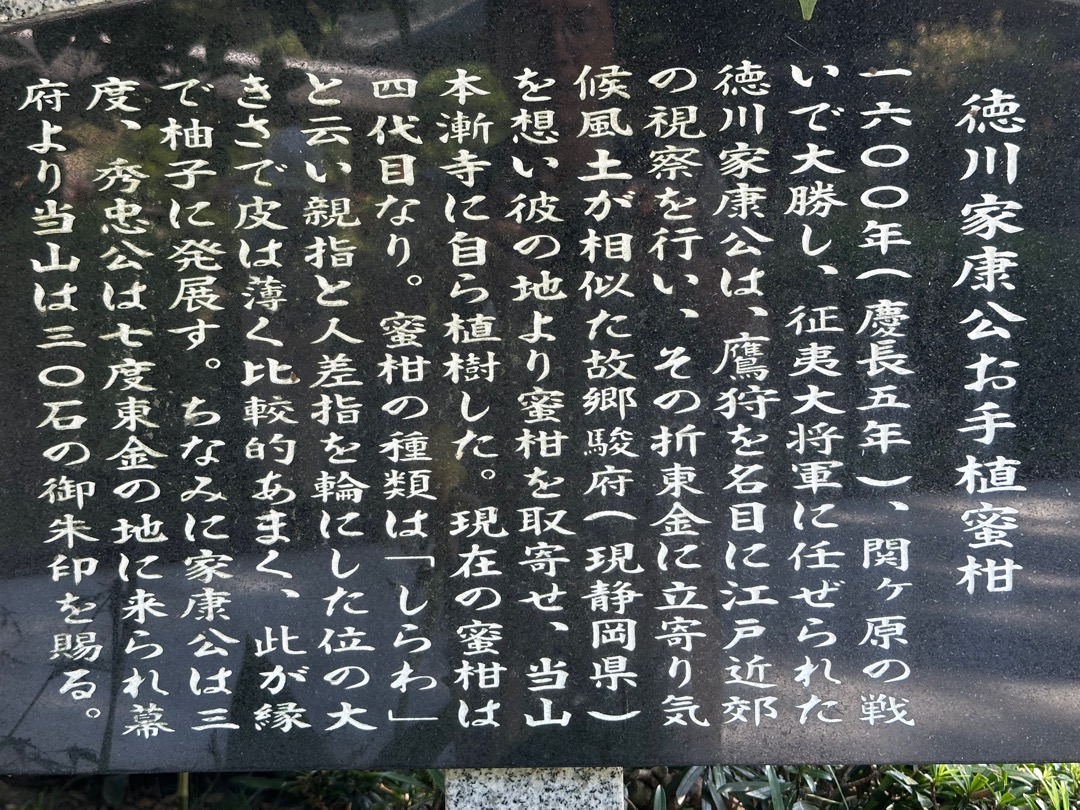 徳川家康公お手植蜜柑
一六〇〇年（慶長五年）、関ヶ原の戦
いで大勝し、征夷大将軍に任ぜられた
徳川家康公は、鷹狩を名目に江戸近郊
の視察を行い、その折東金に立寄り気
候風土が相似た故郷駿府（現静岡県）
を想い彼の地より蜜柑を取寄せ、当山
本漸寺に自ら植樹した。現在の蜜柑は
四代目なり。蜜柑の種類は「しらわ」
と云い親指と人差指を輪にした位の大
きさで皮は薄く比較的あまく、此が縁
で柚子に発展す。ちなみに家康公は三
度、秀忠公は七度東金の地に来られ幕
府より当山は三〇石の御朱印を賜る。